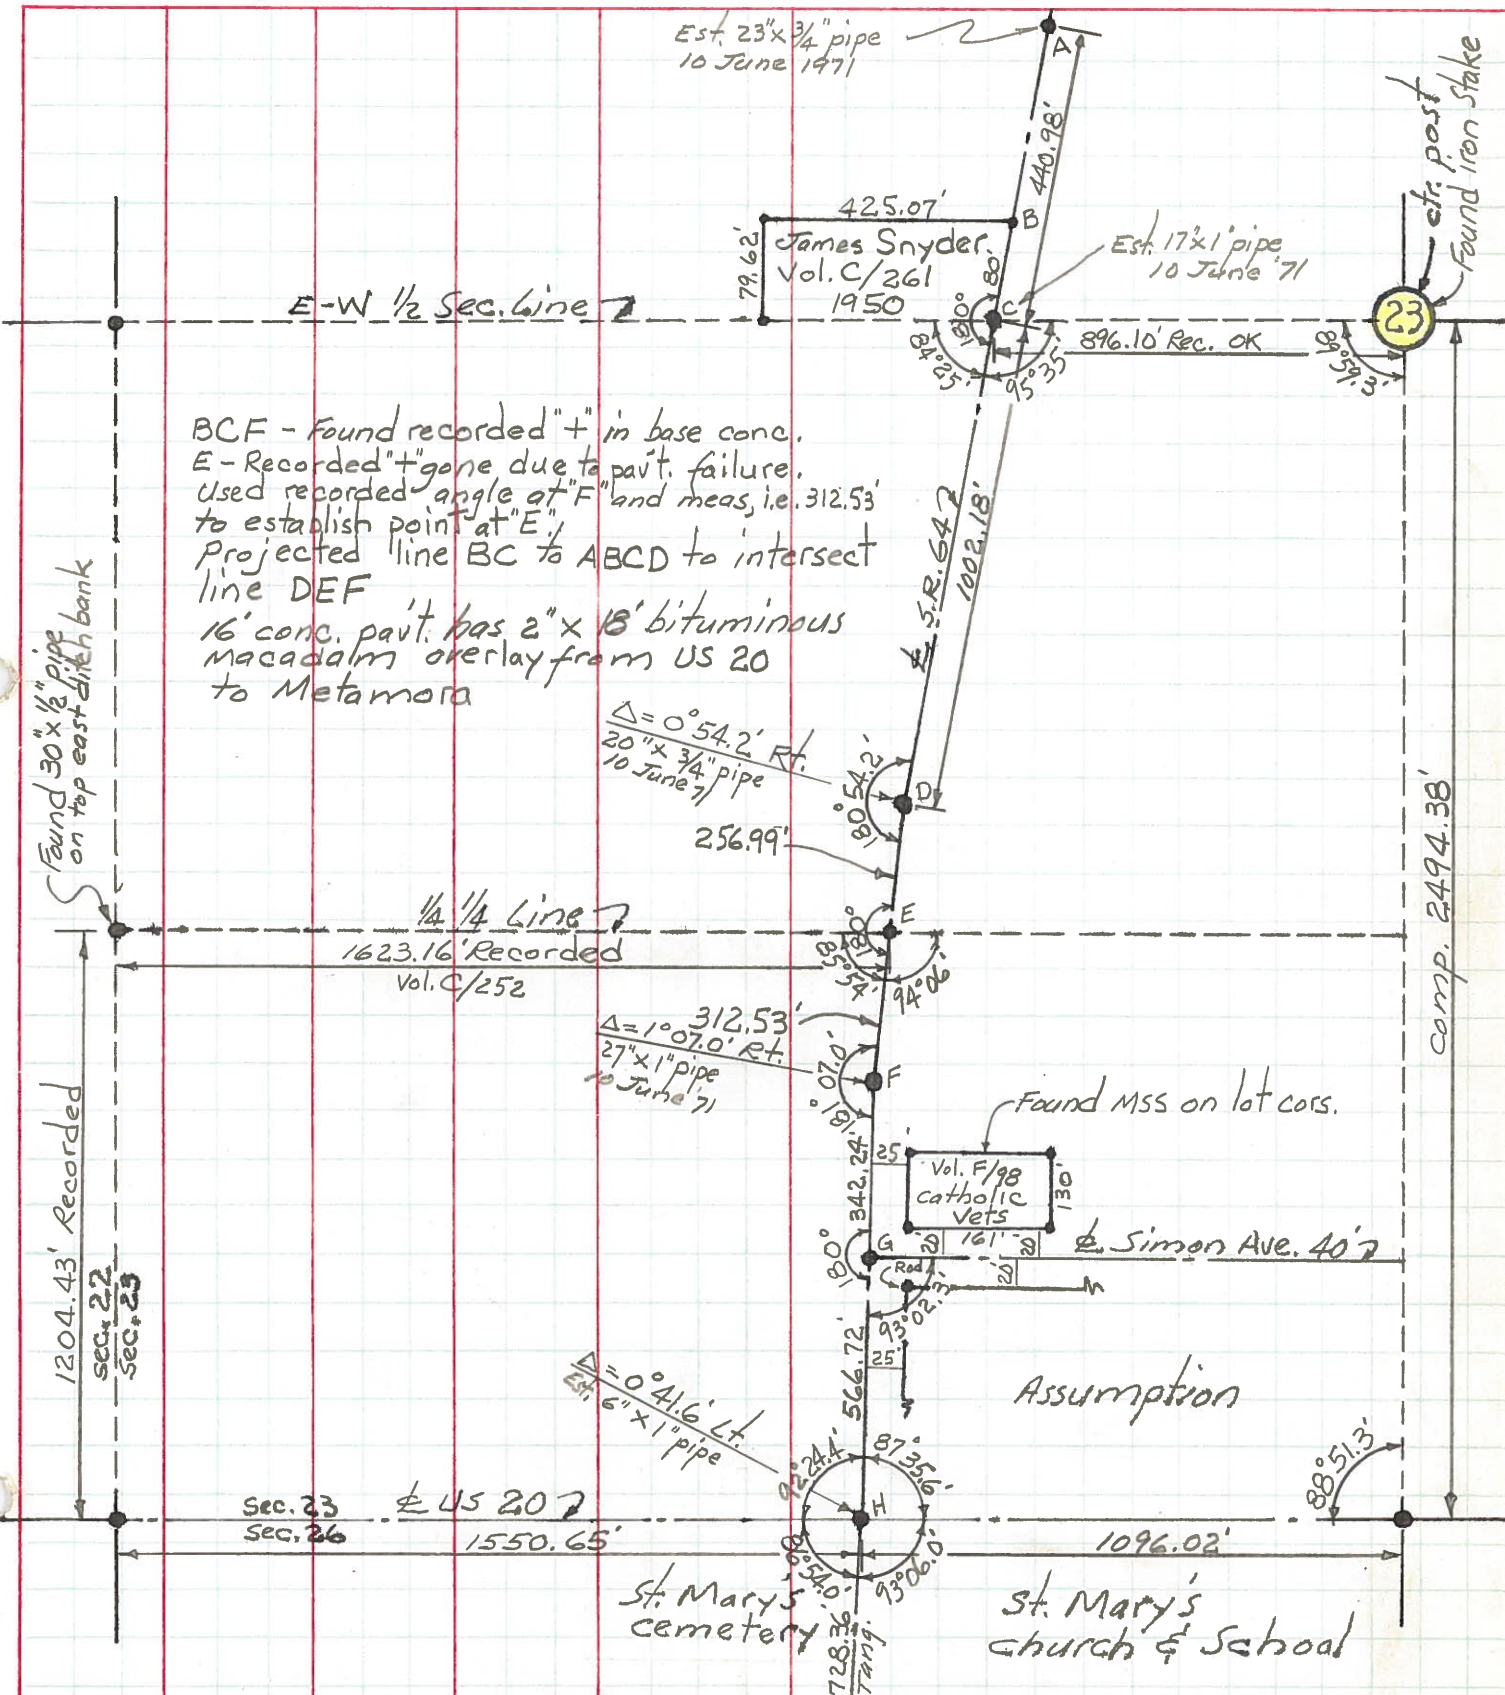 Est. 23"x 3/4" pipe
10 June 1971
A
440.98'
ctr. post
Found Iron Stake
425.07'
B
James Snyder.
Vol. C/261
1950
79.62'
80'
Est. 17"x1" pipe
10 June '71
E-W 1/2 Sec. Line
C
180°
23
896.10' Rec. OK
84°25'
95°35'
89°59.3'
BCF - Found recorded "+" in base conc.
E - Recorded "+" gone due to pav't. failure.
Used recorded angle at "F" and meas, i.e. 312.53'
to establish point at "E".
Projected line BC to ABCD to intersect
line DEF
16' conc. pav't. has 2" x 18' bituminous
Macadalm overlay from US 20
to Metamora
℄ S.R. 64
1002.18'
Found 30"x1/2" pipe
on top east ditch bank
Δ= 0°54.2' Rt.
20"x 3/4" pipe
10 June 71
180°54.2'
D
256.99'
Comp. 2494.38'
1/4 1/4 Line
E
180°
1623.16' Recorded
Vol. C/252
85°54'
94°06'
312.53'
Δ=1°07.0' Rt.
27"x1" pipe
10 June '71
181°07.0'
F
Found MSS on lot cors.
342.24'
25'
Vol. F/98
Catholic
Vets
130'
1204.43' Recorded
Sec. 22
Sec. 23
161'
20'
20'
G
℄ Simon Ave. 40'
180°
Rod
20'
93°02.3'
566.72'
25'
Δ=0°41.6' Lt.
Est. 6" x 1" pipe
Assumption
92°24.4'
87°35.6'
88°51.3'
Sec. 23
Sec. 26
℄ US 20
H
1550.65'
1096.02'
54.0'
93°06.0'
St. Mary's
cemetery
728.36
Tang.
St. Mary's
Church & School